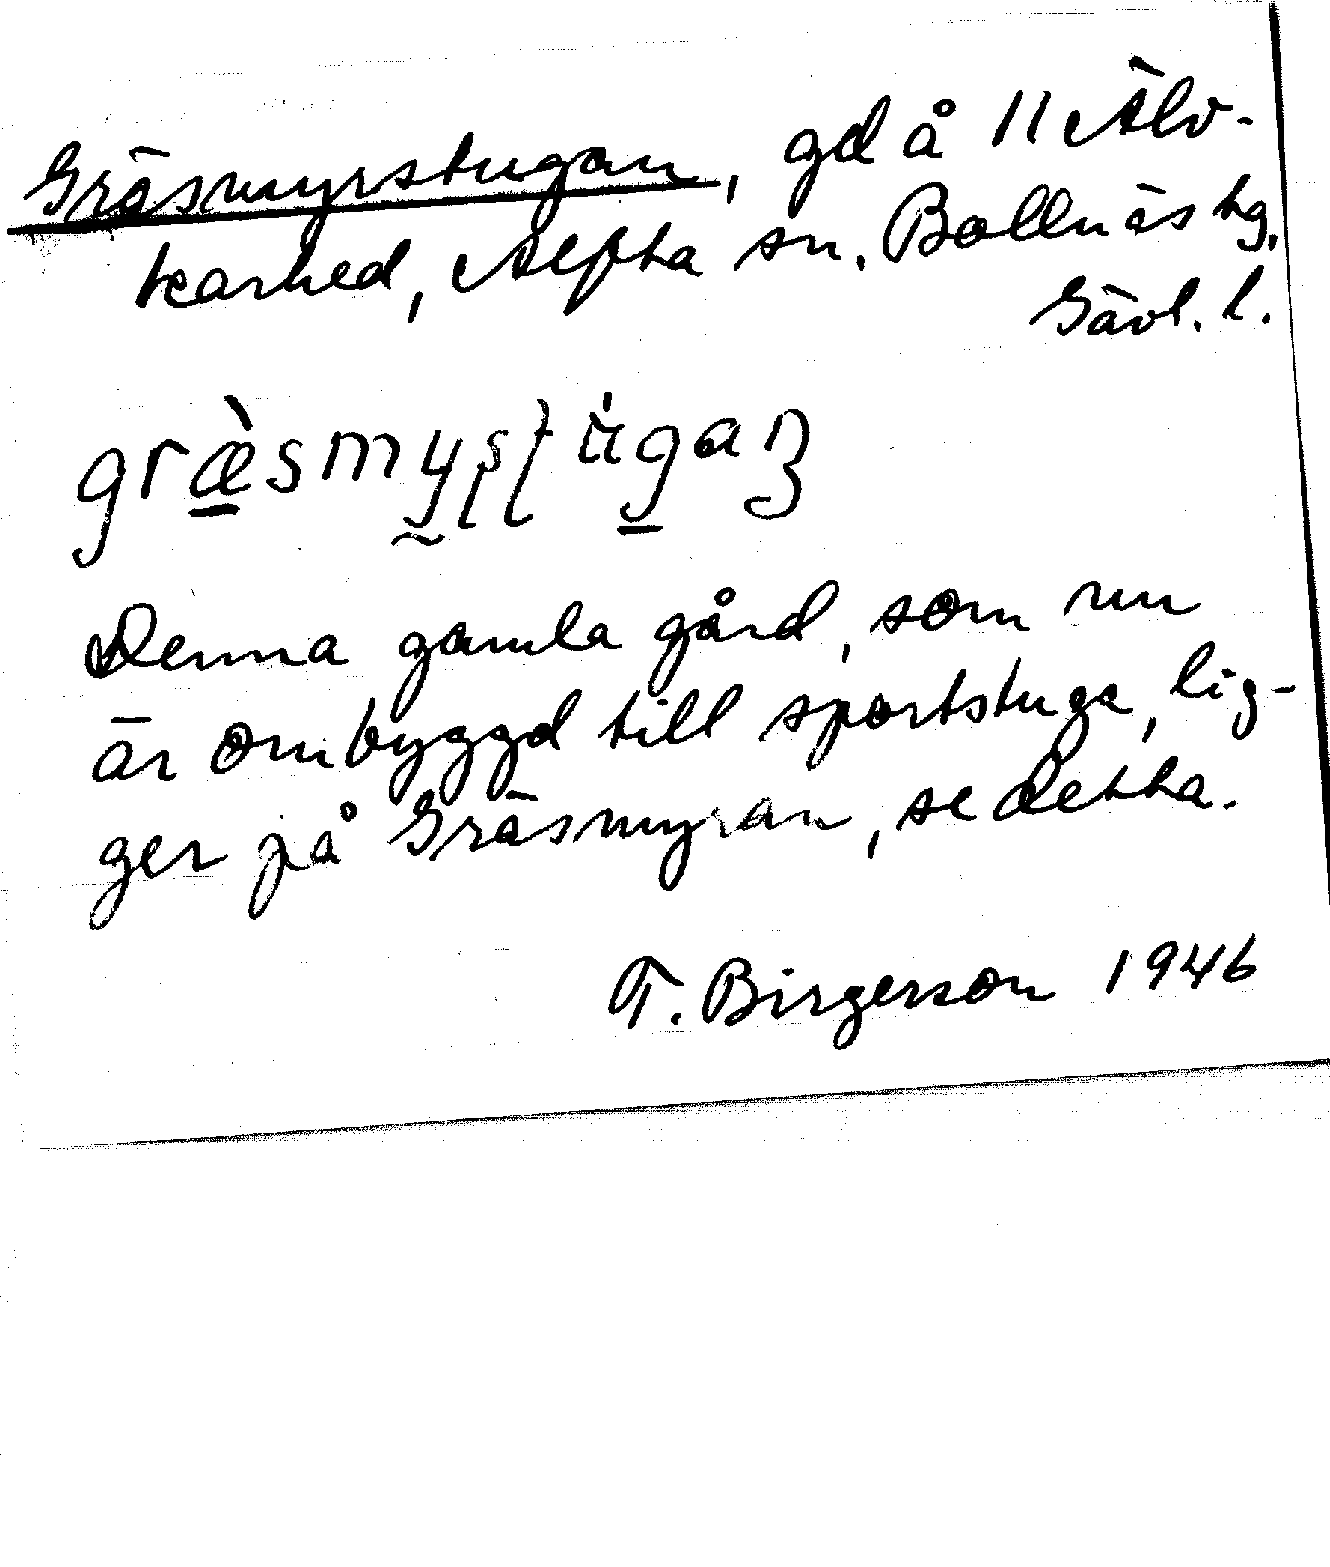 Gräsmyrstugan, gd å 11 Älv-
karhed, Alfta sn. Bollnäs tg.
Gävl. l.
græ̀smyʂʈu̇gaɲ
Denna gamla gård, som nu
är ombyggd till sportstuga, lig-
ger på Gräsmyran, se detta.
T. Birgerson 1946